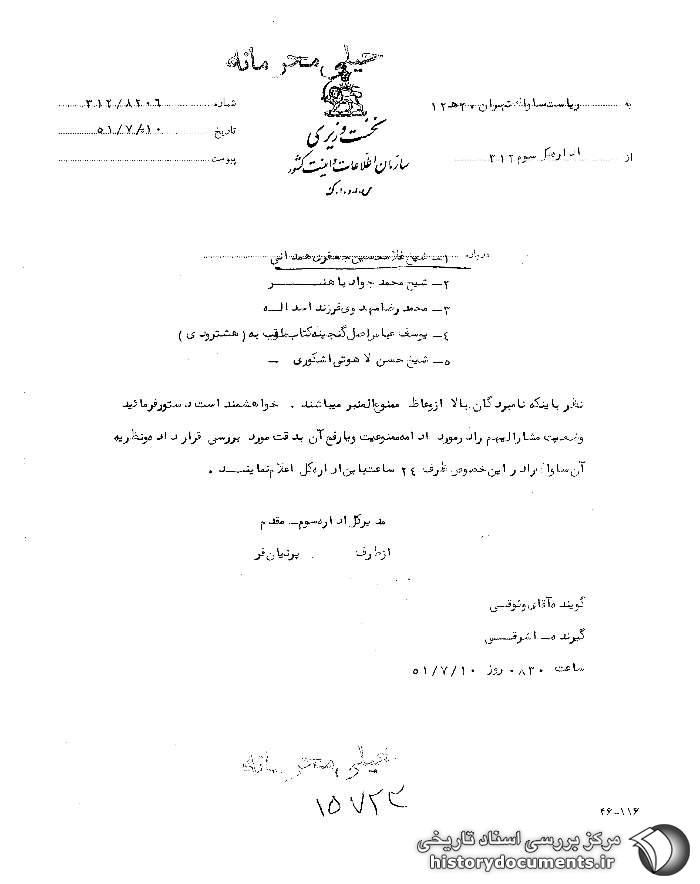 خیلی محرمانه
نخست وزیری
سازمان اطلاعات و امنیت کشور
س.ا.و.ا.ک
به ریاست ساواک تهران ۲۰ هـ ۱۲
از اداره کل سوم ۳۱۲
شماره ۳۱۲/۸۲۰۶
تاریخ ۵۱/۷/۱۰
پیوست
درباره ۱ـ شیخ غلامحسین جعفری همدانی
۲ـ شیخ محمد جواد باهنر
۳ـ محمد رضا مهدوی فرزند اسداله
۴ـ یوسف عباسراصل گنجینه کتاب ملقب به (هشترودی)
۵ـ شیخ حسن لاهوتی اشکوری ـ
نظر باینکه نامبردگان بالا از وعاظ ممنوع‌المنبر میباشند . خواهشمند است دستور فرمائید
وضعیت مشارالیهم را در مورد ادامه ممنوعیت و یا رفع آن بدقت مورد بررسی قرار داده و نظریه
آن ساواک را در این خصوص ظرف ۲۴ ساعت باین اداره کل اعلام نمایند .
مدیرکل اداره سوم ـ مقدم
از طرف . پرنیان فر
گوینده آقای وثوقی
گیرنده ـ اشرفی
ساعت ۰۸۳۰ روز ۵۱/۷/۱۰
خیلی محرمانه
۱۵۷۲۳
۴۶-۱۱۶
مرکز بررسی اسناد تاریخی
historydocuments.ir